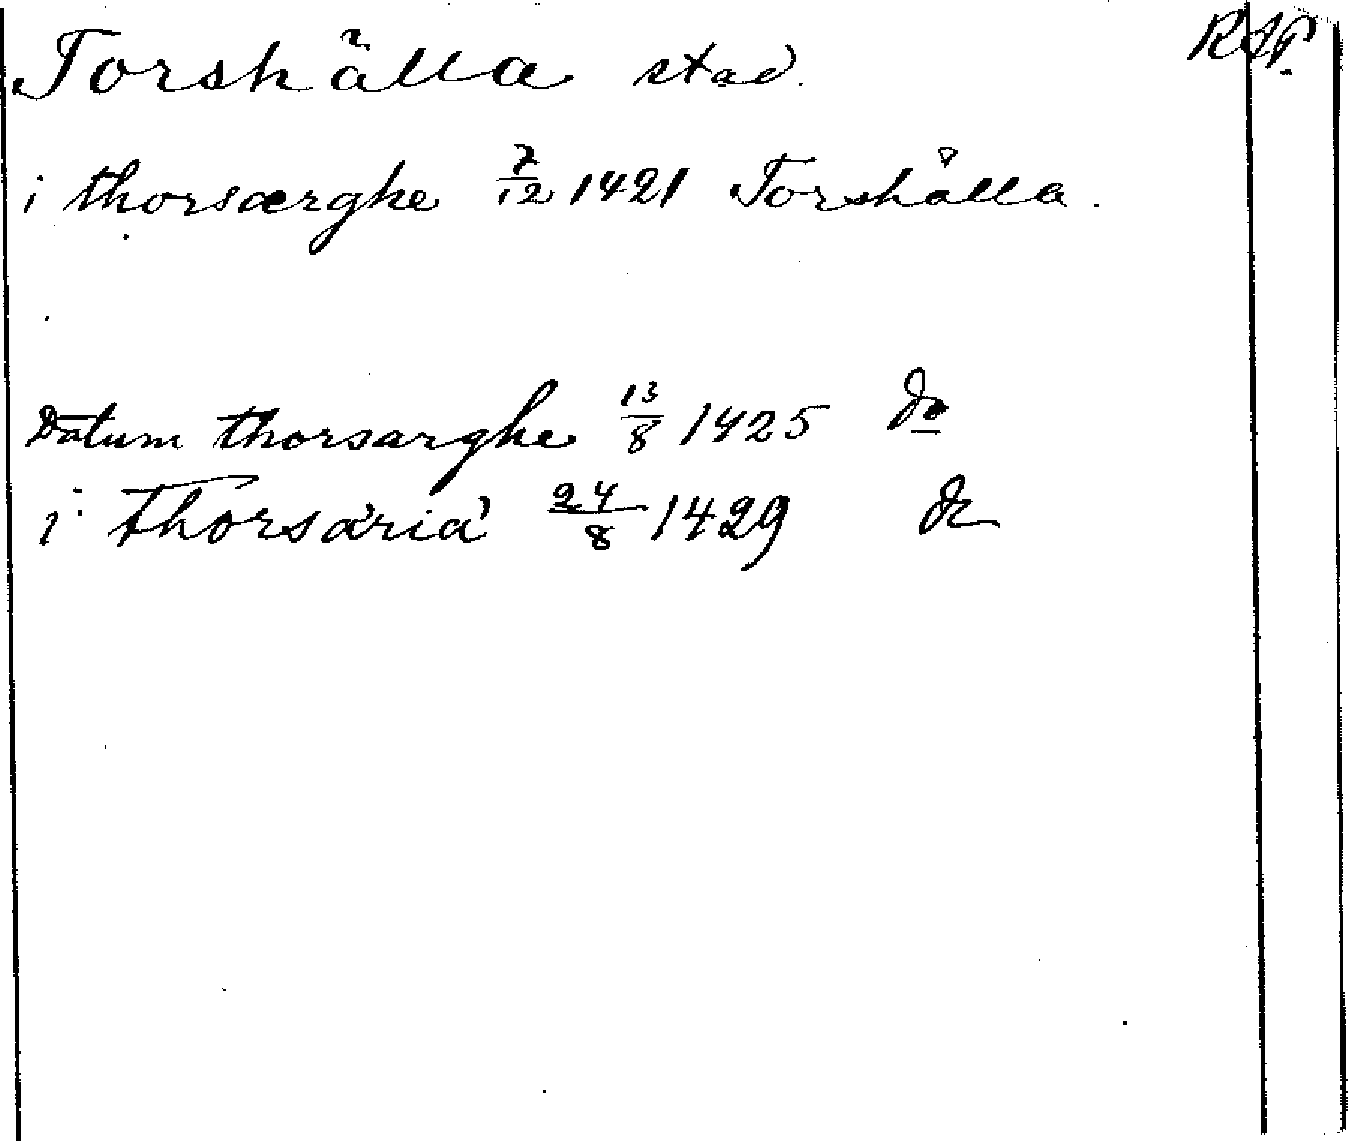 Torshälla stad. RAP.
i thorsærghe 7/12 1421 Torshälla.
Datum thorsarghe 13/8 1425 do
i Thorsaria 24/8 1429 do